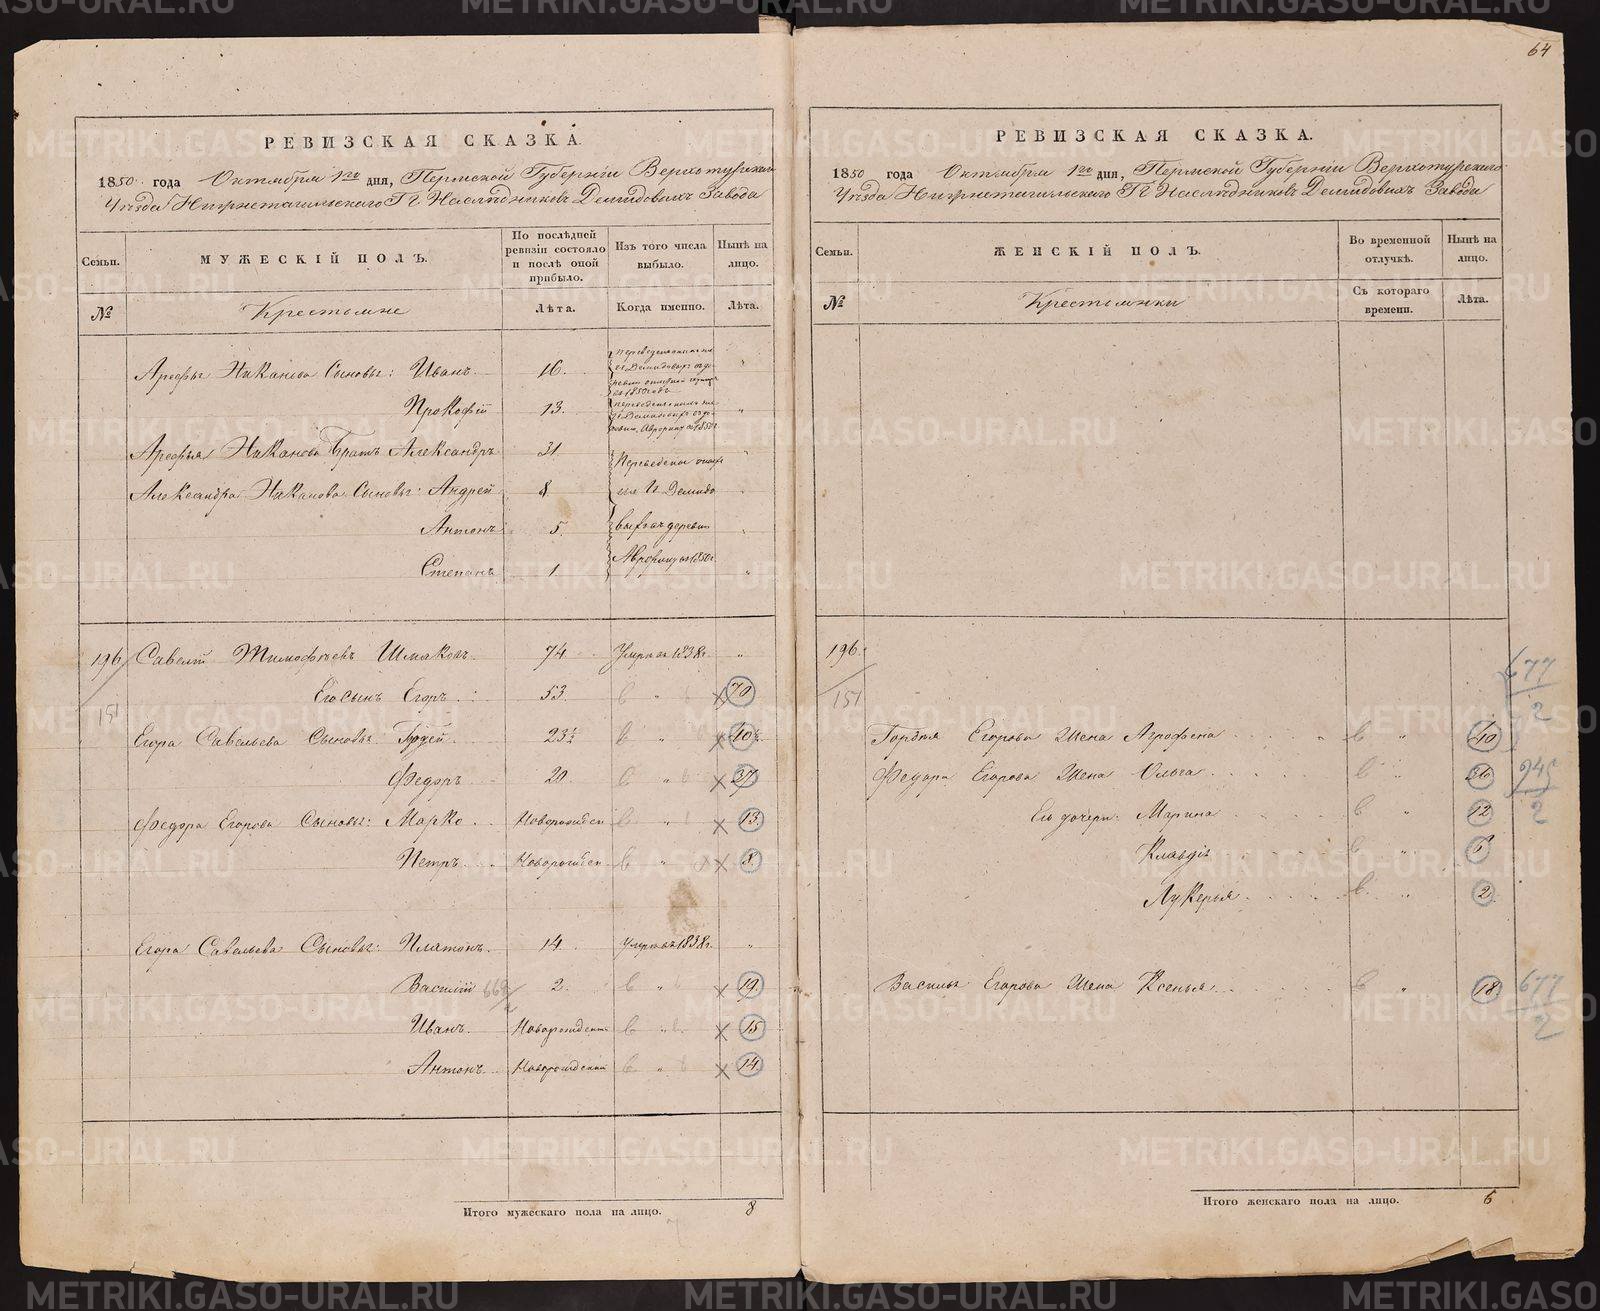 64
РЕВИЗСКАЯ СКАЗКА.
1850 года Октября 1го дня, Пермской Губерніи Верхотурскаго
Уѣзда Нижнетагильскаго Гг Наслѣдниковъ Демидовыхъ Завода
Семьи. МУЖЕСКІЙ ПОЛЪ. По послѣдней ревизіи состояло и послѣ оной прибыло. Изъ того числа выбыло. Нынѣ на лицо.
№ Крестьяне Лѣта. Когда именно. Лѣта.
Арефы Никанова Сыновья: Иванъ 16.
Прокофій 13.
Арефья Никанова Братъ Александръ 31
Александра Никанова Сыновья: Андрей 8
Антонъ 5.
Степанъ 1
196 Савелій Тимофѣевъ Шмаковъ 74 Умеръ въ 1838г. "
151
Его Сынъ Егоръ 53 70
Егора Савельева Сыновья: Гордей 23½ 40½
Федоръ 20 37
Федора Егорова Сыновья: Марко Новорожден 13
Петръ Новорожден 8
Егора Савельева Сыновья: Платонъ 14 Умеръ въ 1838г. "
Василій 2. 19
Иванъ Новорожден 15
Антонъ Новорожденный 14
Итого мужескаго пола на лицо. 8
РЕВИЗСКАЯ СКАЗКА.
1850 года Октября 1го дня, Пермской Губерніи Верхотурскаго
Уѣзда Нижнетагильскаго Гг Наслѣдниковъ Демидовыхъ Завода
Семьи. ЖЕНСКІЙ ПОЛЪ. Во временной отлучкѣ. Нынѣ на лицо.
№ Крестьянки Съ котораго времени. Лѣта.
196.
151
677/2
Гордья Егорова Жена Агрофена 40
Федора Егорова Жена Ольга 36 945/2
Его дочери: Марина 12
Клавдія 6
Лукерья 2
Василья Егорова Жена Ксенья 18 677/2
Итого женскаго пола на лицо. 6
METRIKI.GASO-URAL.RU